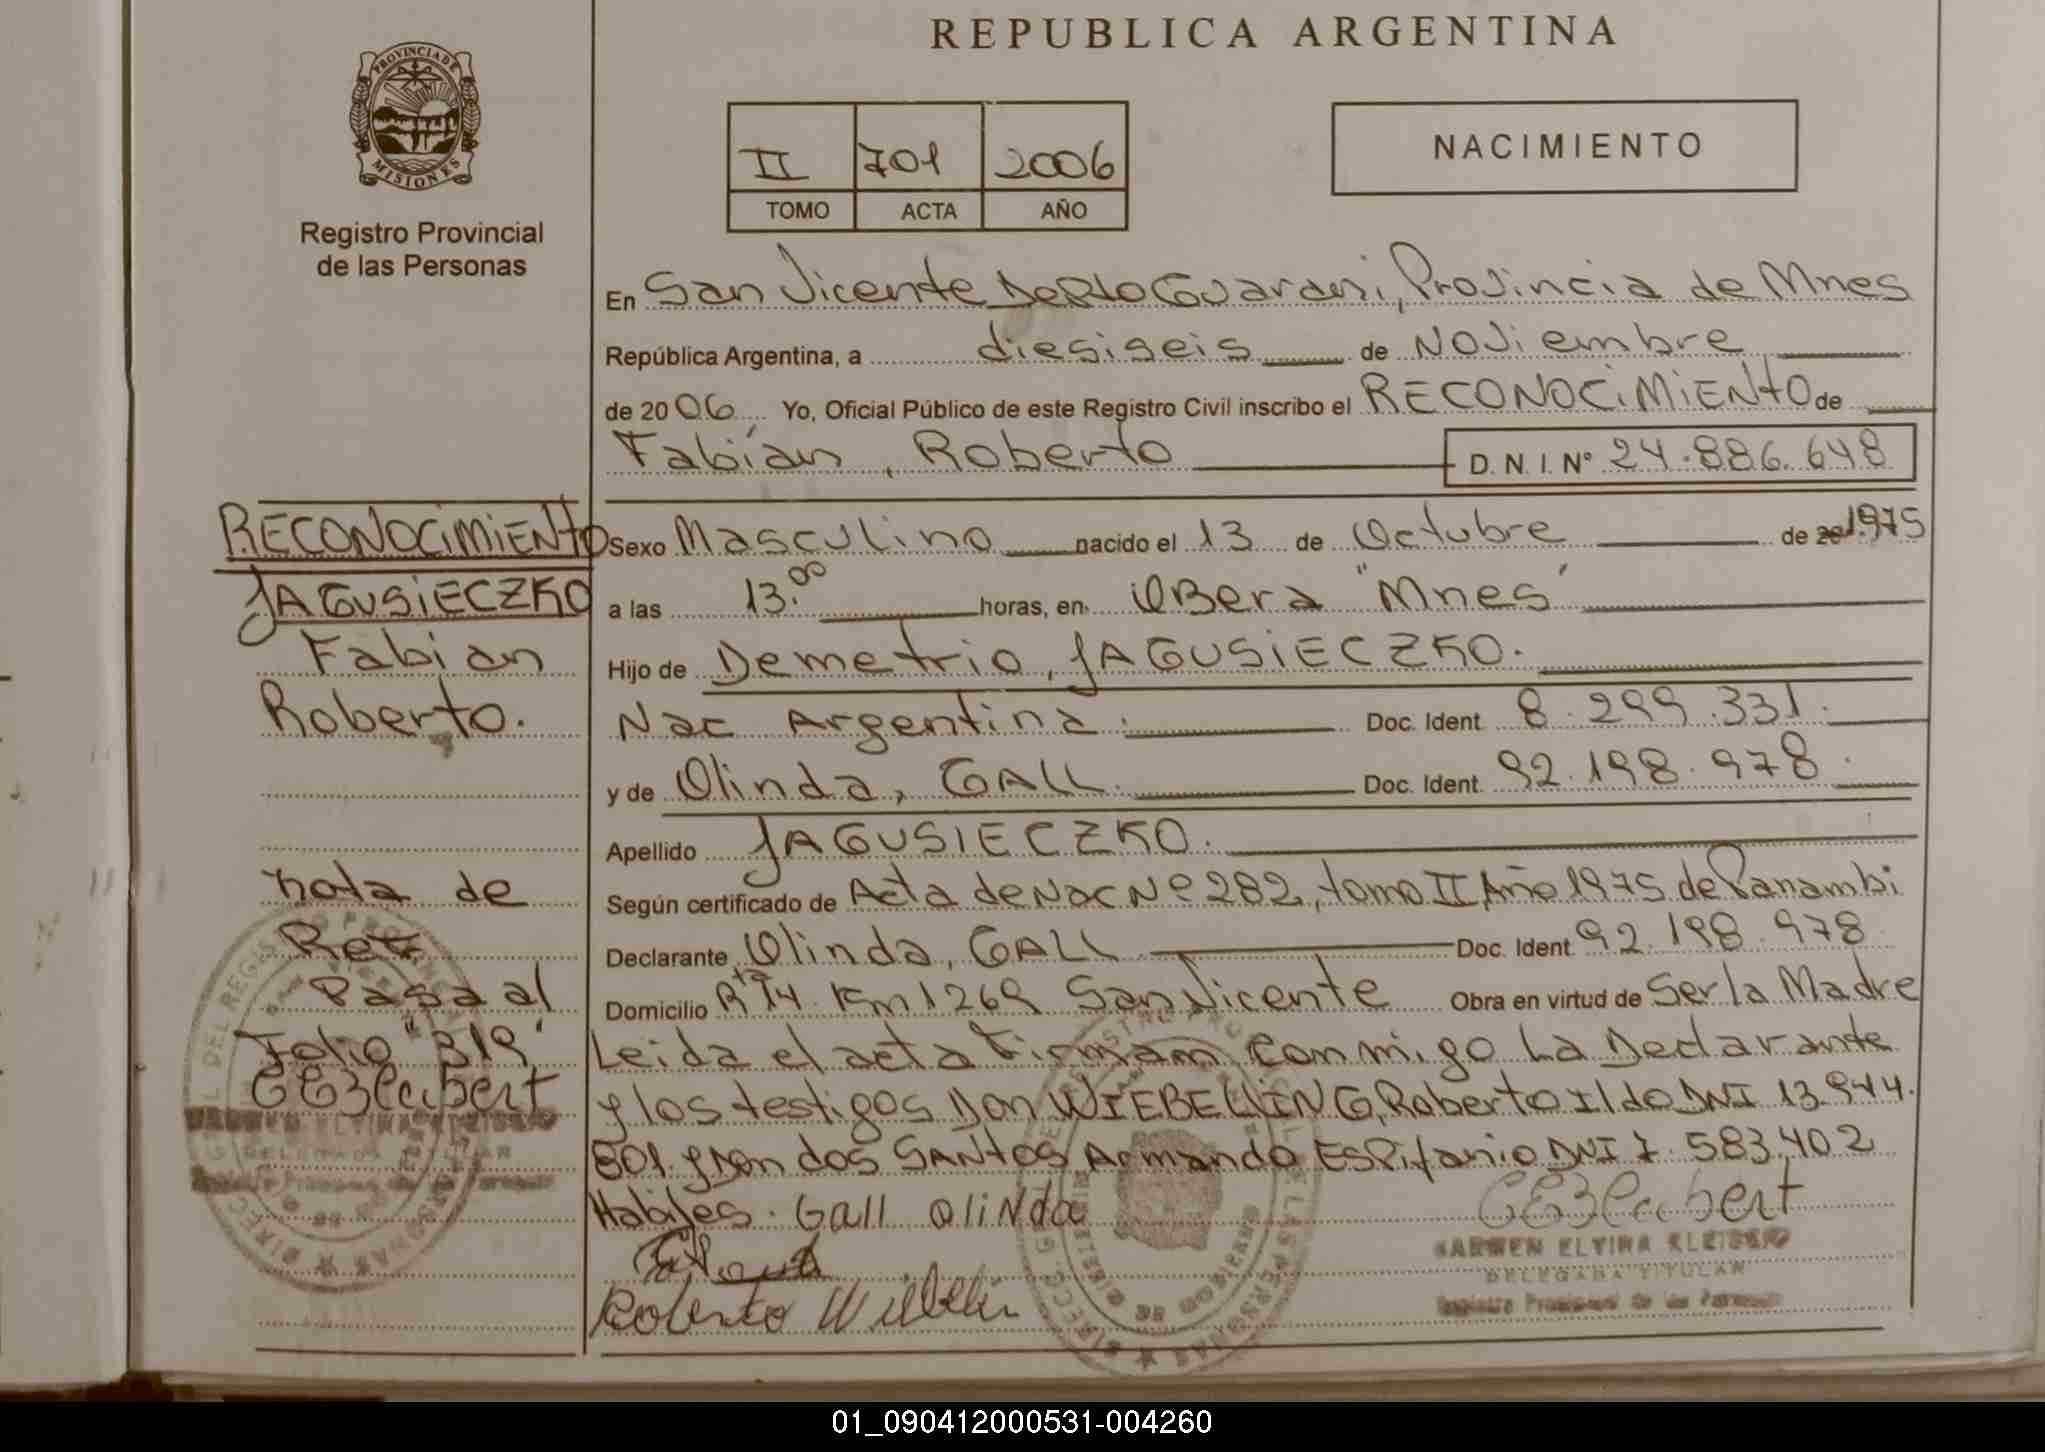 REPUBLICA ARGENTINA
PROVINCIA DE
MISIONES
Registro Provincial
de las Personas
II 701 2006
TOMO ACTA AÑO
NACIMIENTO
En San Vicente Depto Guarani, Provincia de Mnes
República Argentina, a diesiseis de Noviembre
de 2006 Yo, Oficial Público de este Registro Civil inscribo el RECONOCIMIENTO de
Fabián, Roberto D. N. I. Nº 24.886.648
RECONOCIMIENTO
JAGUSIECZKO
Fabian
Roberto.
Sexo Masculino nacido el 13 de Octubre de 20 1975
a las 13.00 horas, en OBera "Mnes"
Hijo de Demetrio, JAGUSIECZKO.
Nac Argentina. Doc. Ident. 8.299.331.
y de Olinda, GALL. Doc. Ident. 92.198.978.
Apellido JAGUSIECZKO.
Según certificado de Acta de Nac Nº 282, tomo II Año 1975 de Panambi
Declarante Olinda, GALL Doc. Ident. 92.198.978
Domicilio Rta 14 Km 1269 San Vicente Obra en virtud de Ser la Madre
Leida el acta Firmam conmigo La Declarante
y los testigos Don WIEBELLING, Roberto Ildo DNI 13.944.
801 y Don dos SANTOS, Armando Espifanio DNI 7.583.402
Habiles. Gall Olinda
Roberto
CARMEN ELVIRA
DELEGADA TITULAR
Registro Provincial de las Personas
nota de
Ref
Pasa al
Folio "319"
CARMEN ELVIRA
DELEGADA TITULAR
Registro Provincial de las Personas
01_090412000531-004260